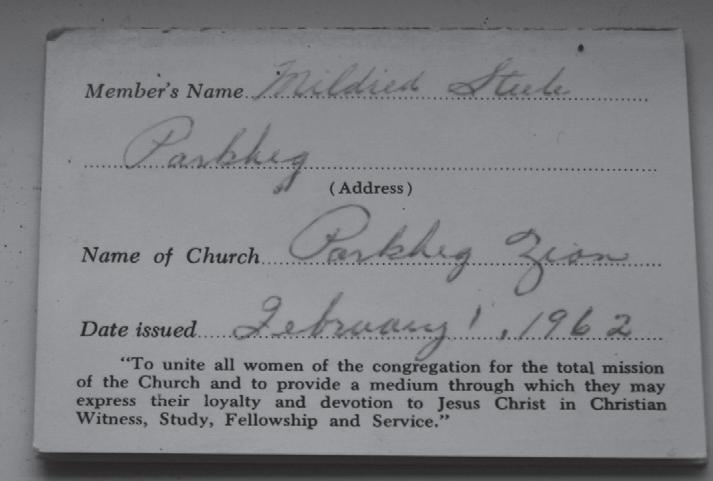 Member's Name Mildred Steele
Parkbeg
(Address)
Name of Church Parkbeg Zion
Date issued February 1, 1962
"To unite all women of the congregation for the total mission
of the Church and to provide a medium through which they may
express their loyalty and devotion to Jesus Christ in Christian
Witness, Study, Fellowship and Service."